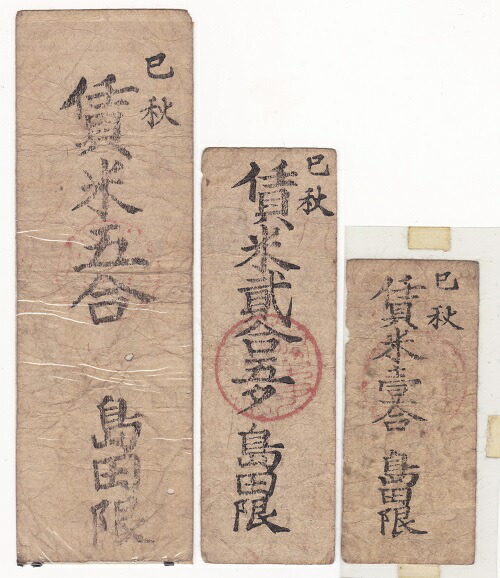 巳秋
賃米五合
島田限
巳秋
賃米貳合五夕
島田限
巳秋
賃米壹合
島田限